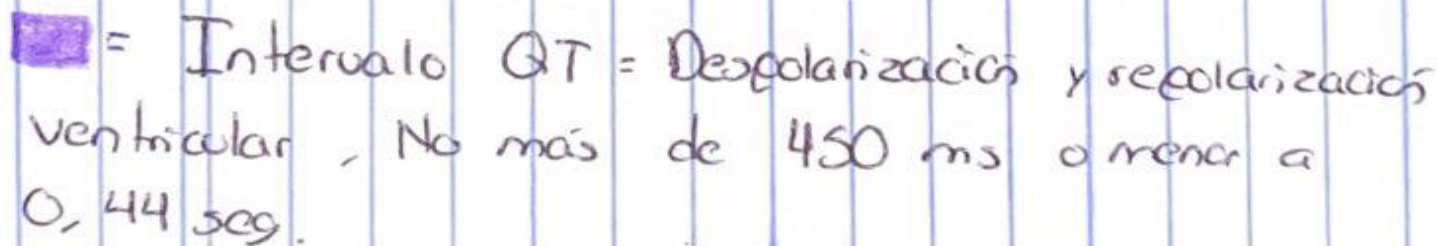 = Intervalo QT = Despolarización y repolarización
ventricular. No más de 450 ms o menor a
0,44 seg.